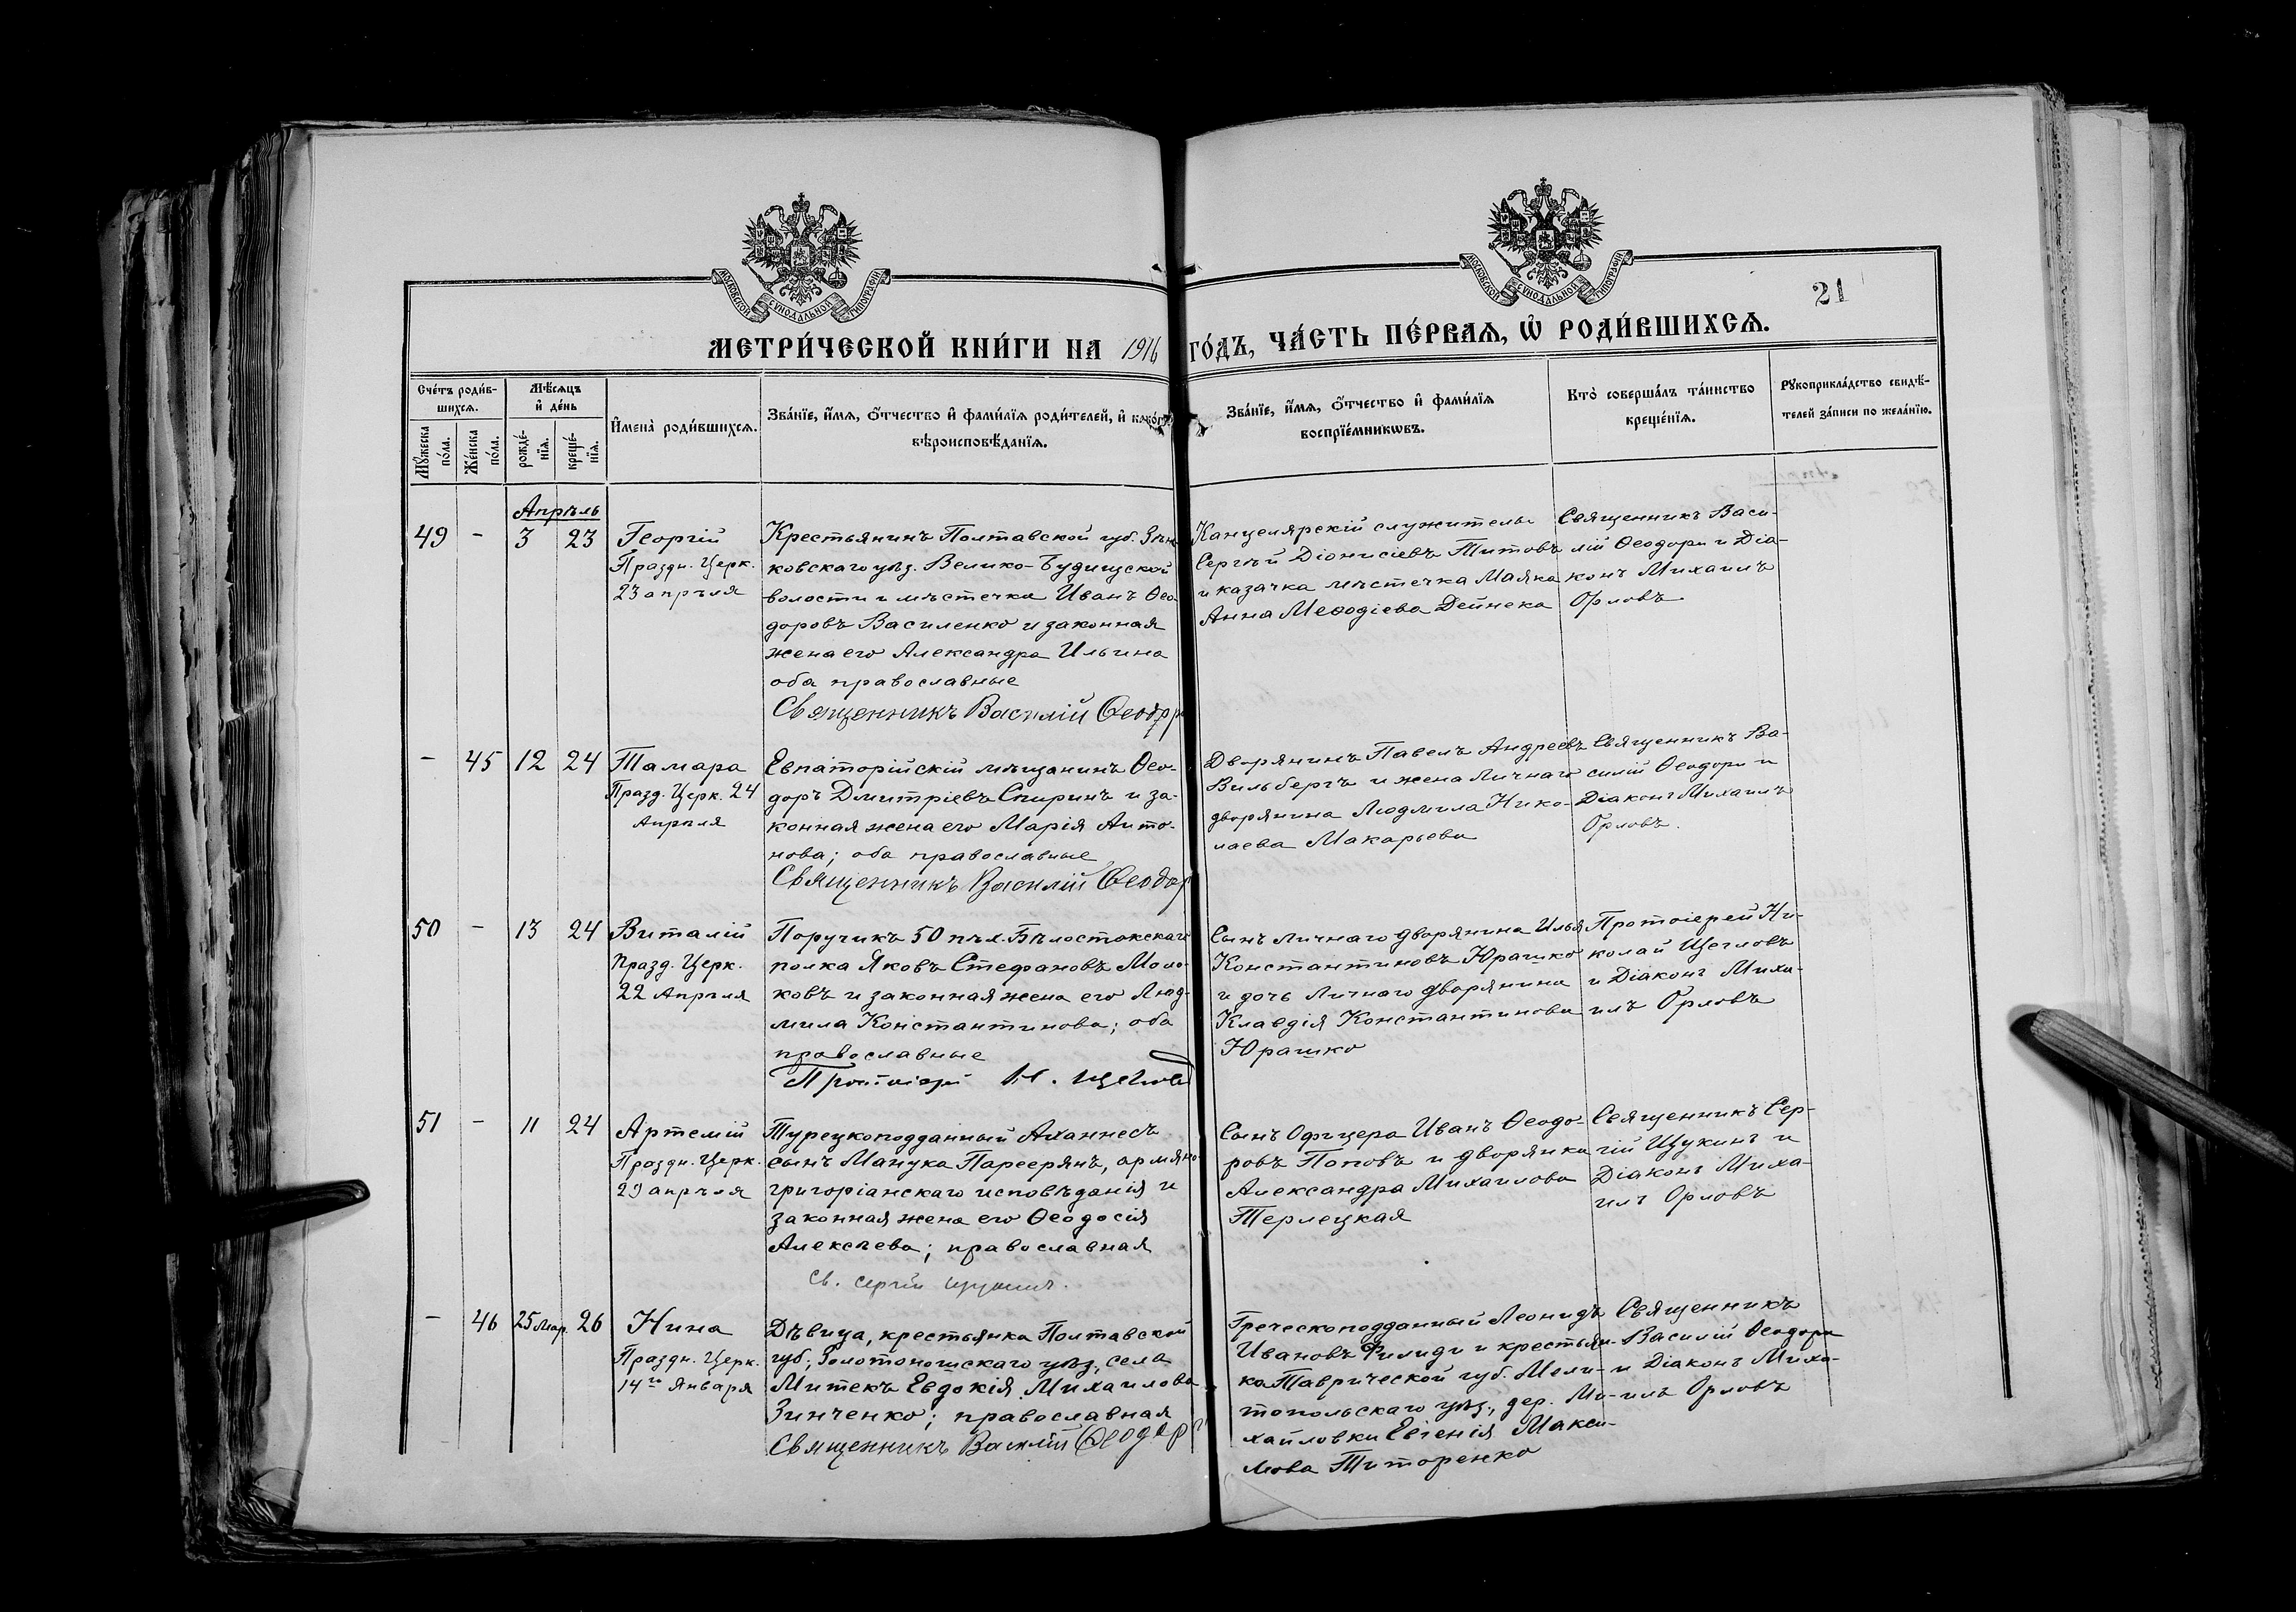 МОСКОВСКОЙ СѴНОДАЛЬНОЙ ТИПОГРАФІИ
МОСКОВСКОЙ СѴНОДАЛЬНОЙ ТИПОГРАФІИ
21
МЕТРИ́ЧЕСКОЙ КНИ́ГИ НА 1916 ГО́ДЪ, ЧА́СТЬ ПЕ́РВАѦ, Ѡ҆ РОДИ́ВШИХСѦ.
Сче́тъ роди́в-
шихсѧ.
Мꙋ́жеска по́ла.
Же́нска по́ла.
Мѣ́сѧцъ
и҆ де́нь
рожде́-
нїѧ.
креще́-
нїѧ.
И҆мена̀ роди́вшихсѧ.
Зва́нїе, и҆́мѧ, ѻ҆́тчество и҆ фами́лїѧ роди́телей, и҆ како́гѡ
вѣроисповѣ́данїѧ.
Зва́нїе, и҆́мѧ, ѻ҆́тчество и҆ фами́лїѧ
воспрїе́мникѡвъ.
Кто̀ соверша́лъ та́инство
креще́нїѧ.
Рꙋкоприкла́дство свидѣ́-
телей за́писи по жела́нїю.
Апрѣль
49 - 3 23
Георгій
Праздн. Церк.
23 апрѣля
Крестьянинъ Полтавской губ. Зѣнь
ковскаго уѣз. Велико-Будищской
волости и мѣстечка Иванъ Ѳео-
доровъ Василенко и законная
жена его Александра Ильина
оба православные
Священникъ Василій Ѳеодори
Канцелярскій служитель
Сергѣй Діонисіевъ Титовъ
и казачка мѣстечка Маяка
Анна Меѳодіева Дейнека
Священникъ Васи-
лій Ѳеодори и Діа-
конъ Михаилъ
Орловъ
- 45 12 24
Тамара
Празд. Церк. 24
Апрѣля
Евпаторійскій мѣщанинъ Ѳео-
доръ Дмитріевъ Спиринъ и за-
конная жена его Марія Анто-
нова; оба православные
Священникъ Василій Ѳеодори
Дворянинъ Павелъ Андреевъ
Вильбергъ и жена Личнаго
дворянина Людмила Нико-
лаева Макарьева
Священникъ Ва-
силій Ѳеодори и
Діаконъ Михаилъ
Орловъ.
50 - 13 24
Виталій
Празд. Церк.
22 Апрѣля
Поручикъ 50 пѣх. Бѣлостокскаго
полка Яковъ Стефановъ Моло-
ковъ и законная жена его Люд-
мила Константинова; оба
православные
Протоіерей Н. Щегловъ
Сынъ Личнаго дворянина Илья
Константиновъ Юрашко
и дочь Личнаго дворянина
Клавдія Константинова
Юрашко
Протоіерей Ни-
колай Щегловъ
и Діаконъ Миха-
илъ Орловъ
51 - 11 24
Артемій
Праздн. Церк.
29 апрѣля
Турецкоподданный Аханнесъ
сынъ Манука Парсерянъ, армяно-
григоріанскаго исповѣданія и
законная жена его Ѳеодосія
Алексѣева; православная
Св. Сергій Щукинъ.
Сынъ Офицера Иванъ Ѳеодо-
ровъ Поповъ и дворянка
Александра Михаилова
Терлецкая
Священникъ Сер-
гій Щукинъ и
Діаконъ Миха-
илъ Орловъ
- 46 25 мар. 26
Нина
Праздн. Церк.
14го Января
Дѣвица, крестьянка Полтавской
губ., Золотоношскаго уѣз., села
Митекъ Евдокія Михаилова
Зинченко; православная
Священникъ Василій Ѳеодори
Греческоподданный Леонидъ
Ивановъ Филиди и крестьян-
ка Таврической губ. Мели-
топольскаго уѣз., дер. Ми-
хайловки Евгенія Макси-
мова Титоренко
Священникъ
Василій Ѳеодори
и Діаконъ Миха-
илъ Орловъ